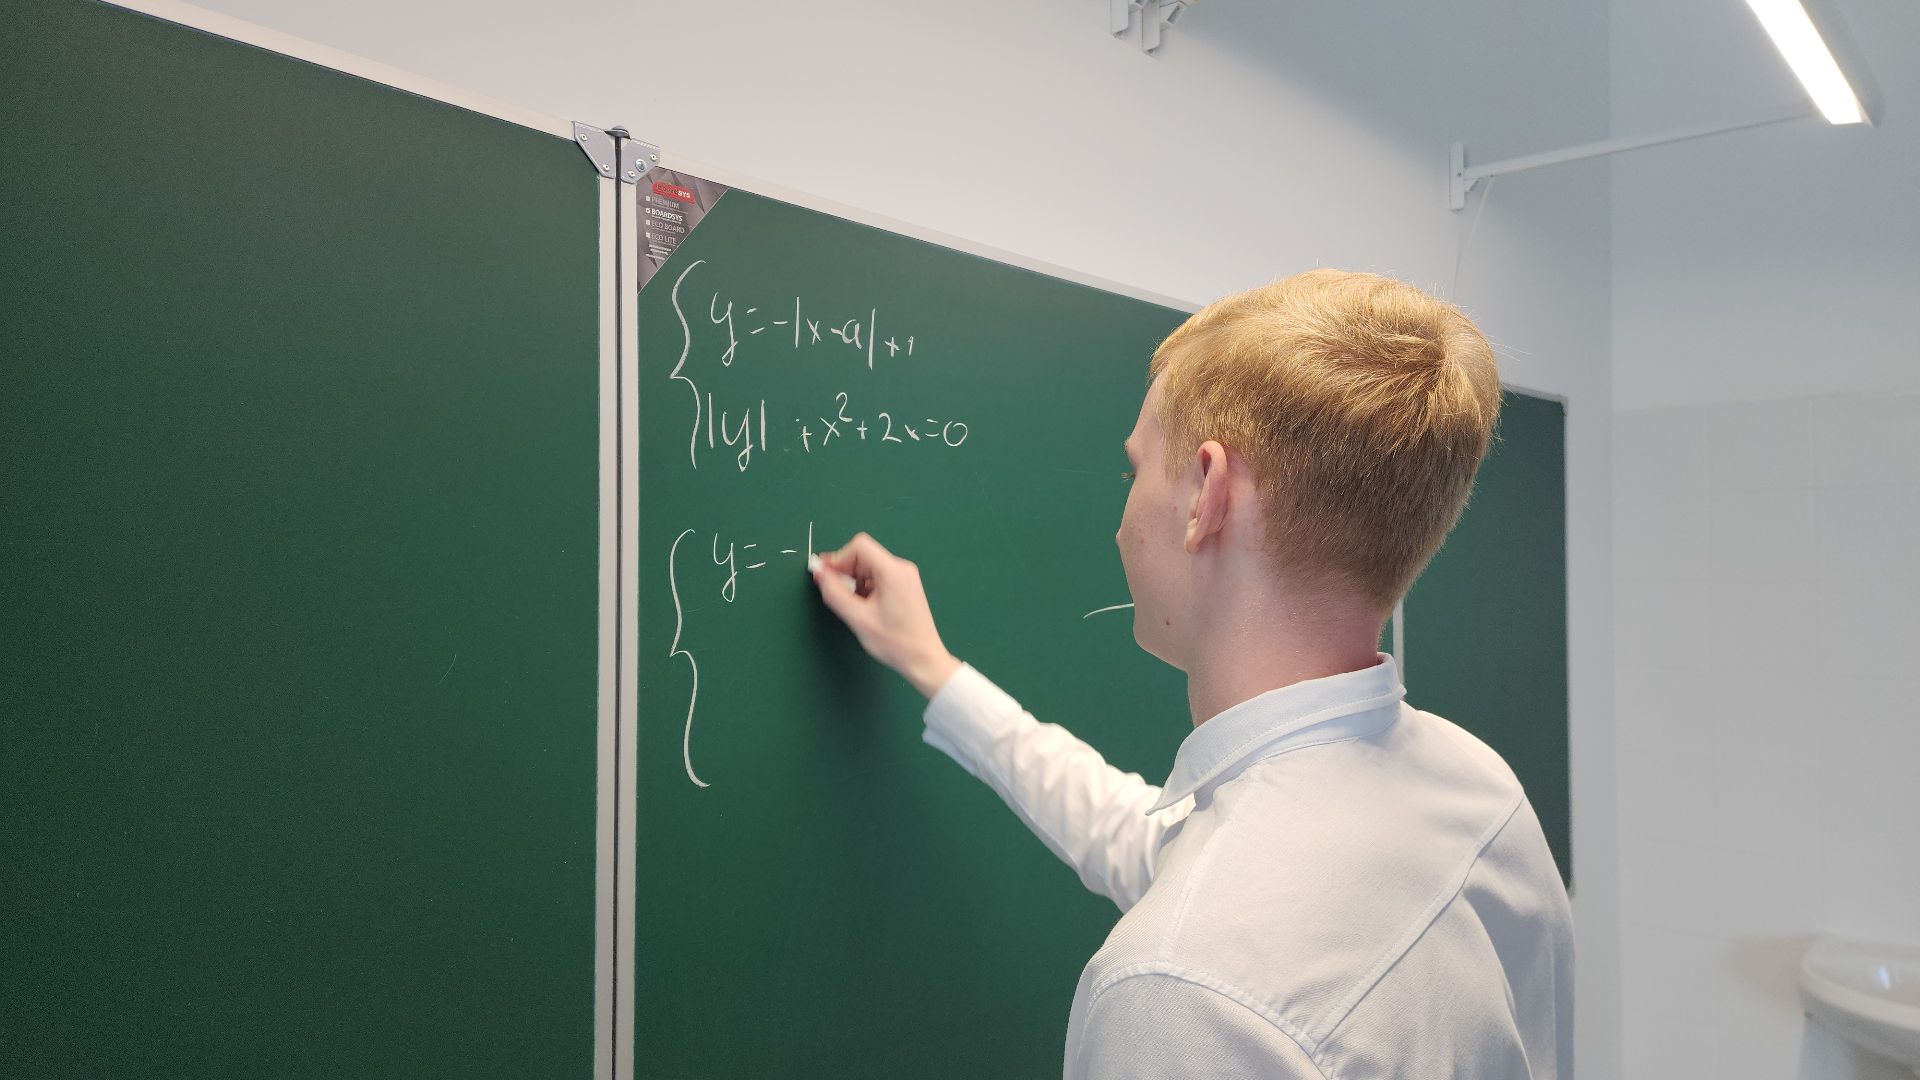 PREMIUM
BOARDSYS
ECO BOARD
ECO LITE
y=-|x-a|+1
|y| +x²+2x=0
y= -|